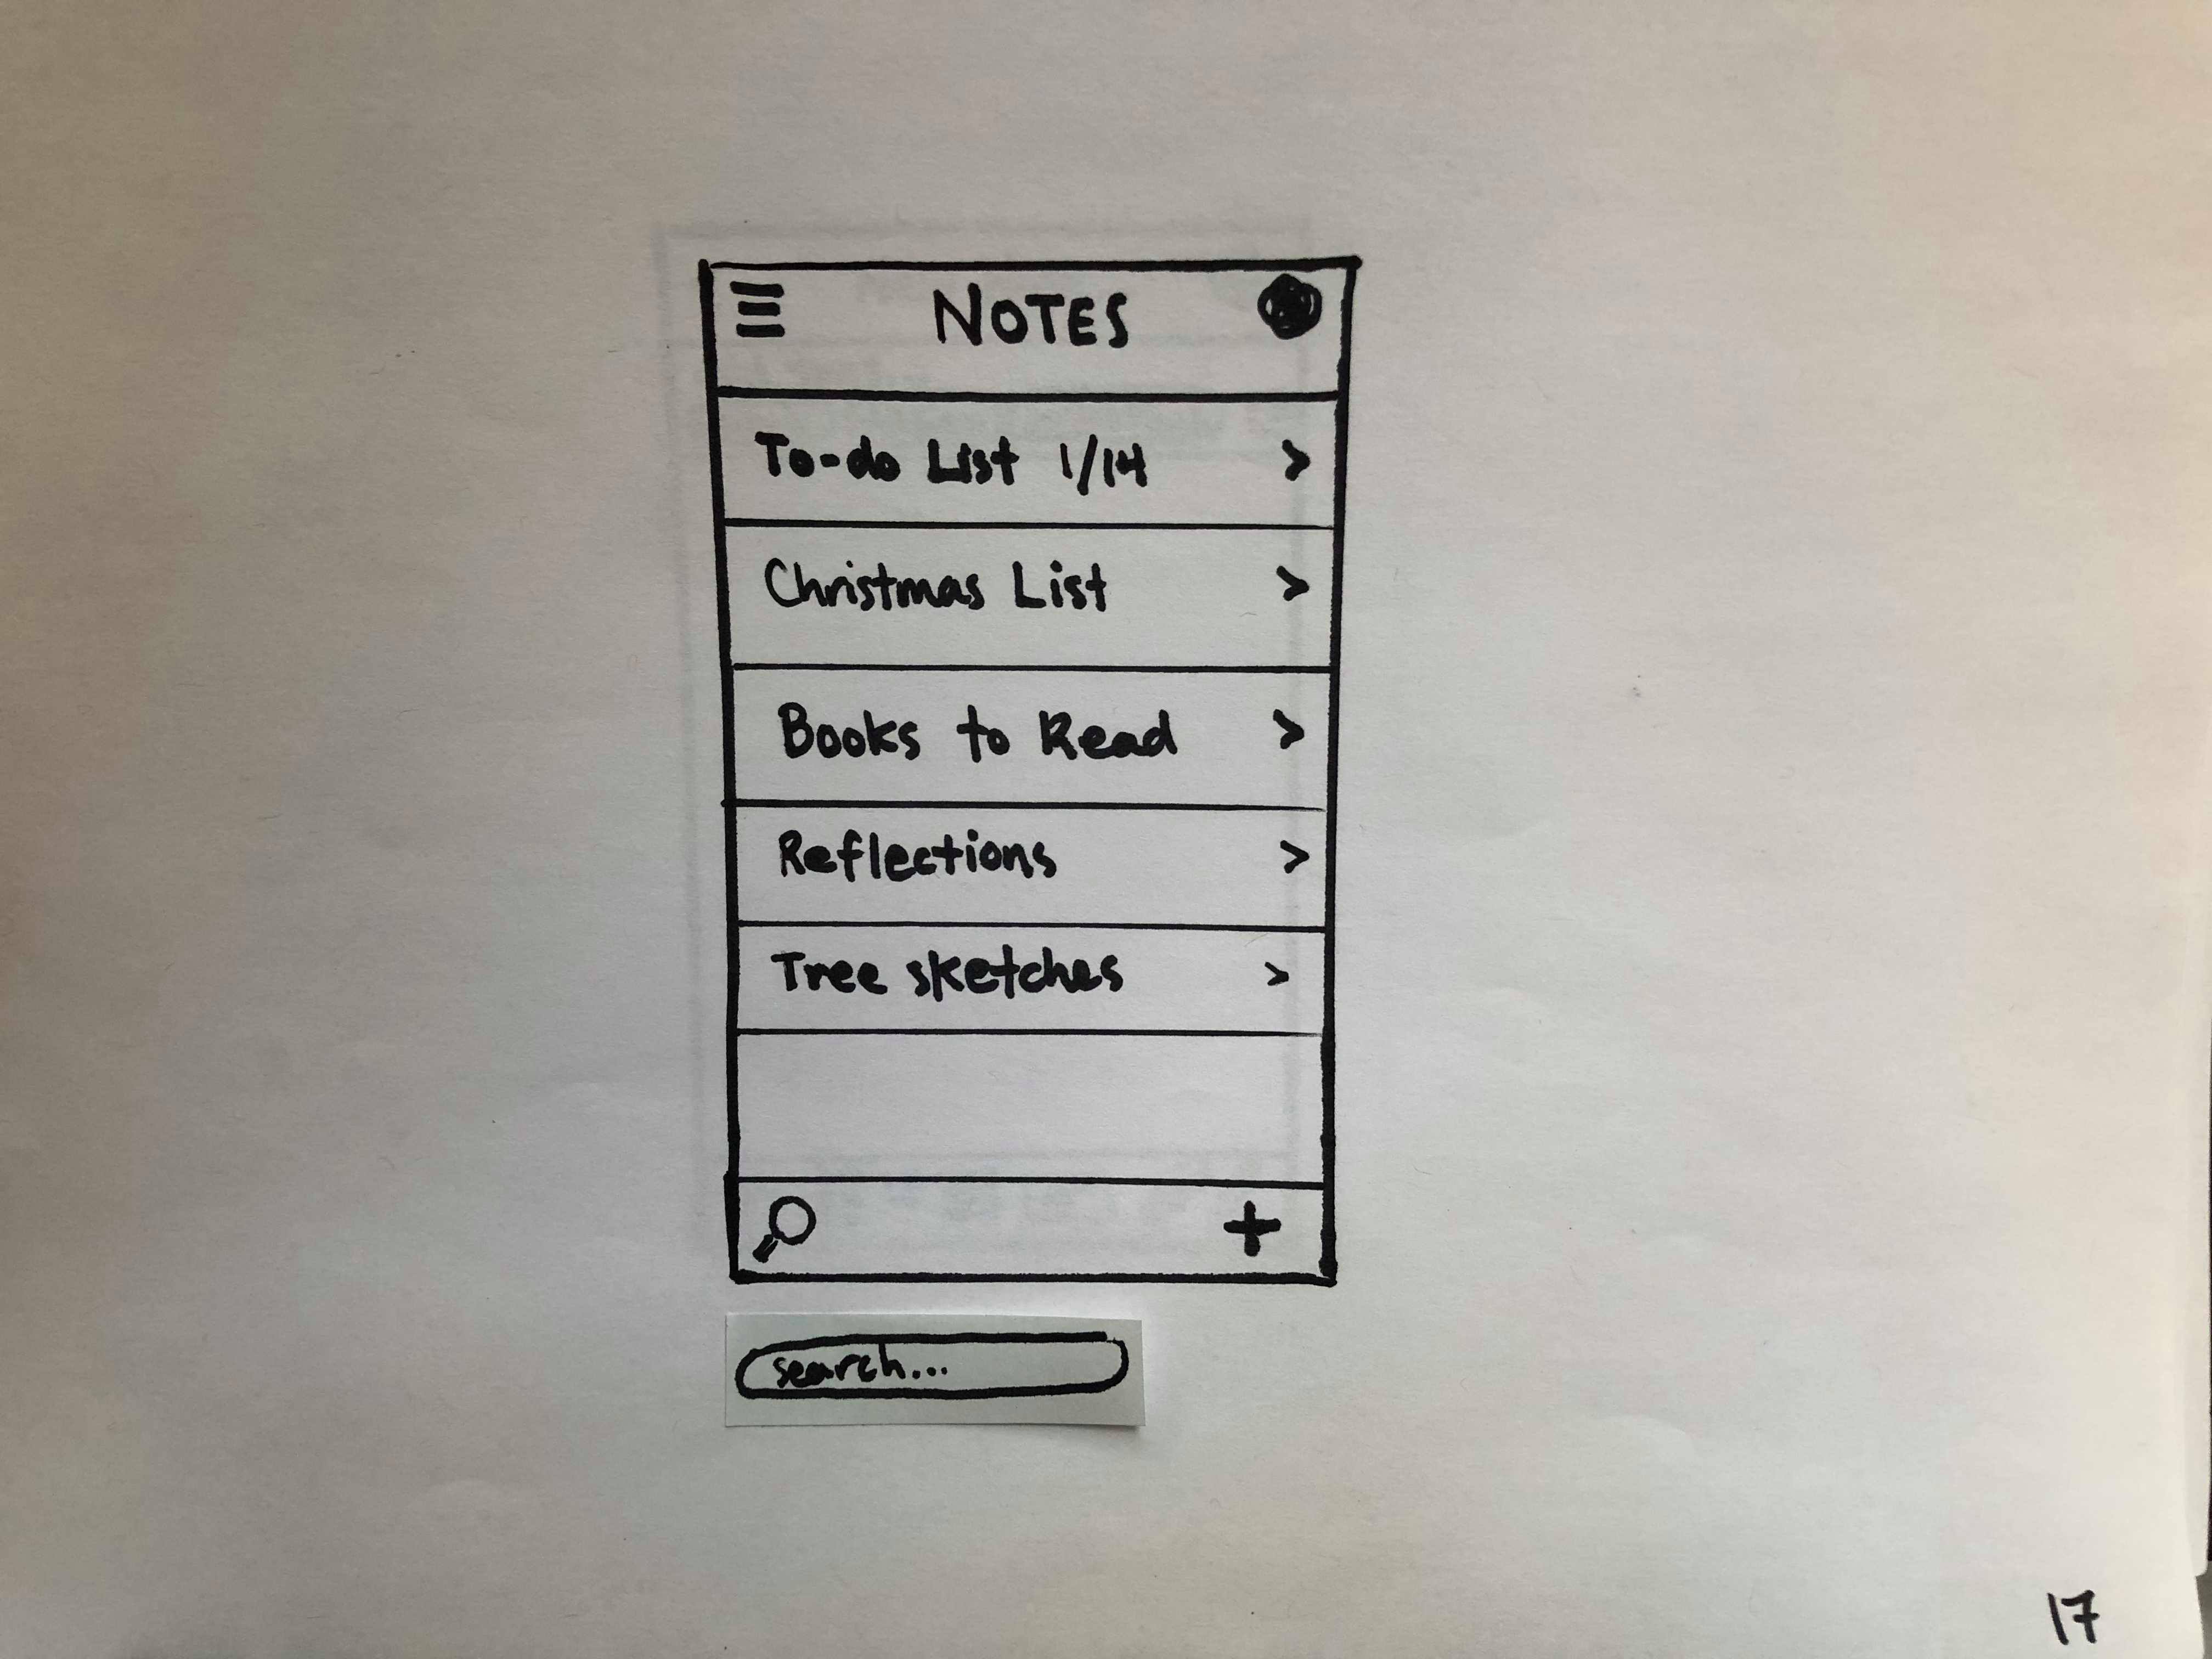 NOTES
To-do List 1/14 >
Christmas List >
Books to Read >
Reflections >
Tree sketches >
+
search...
17